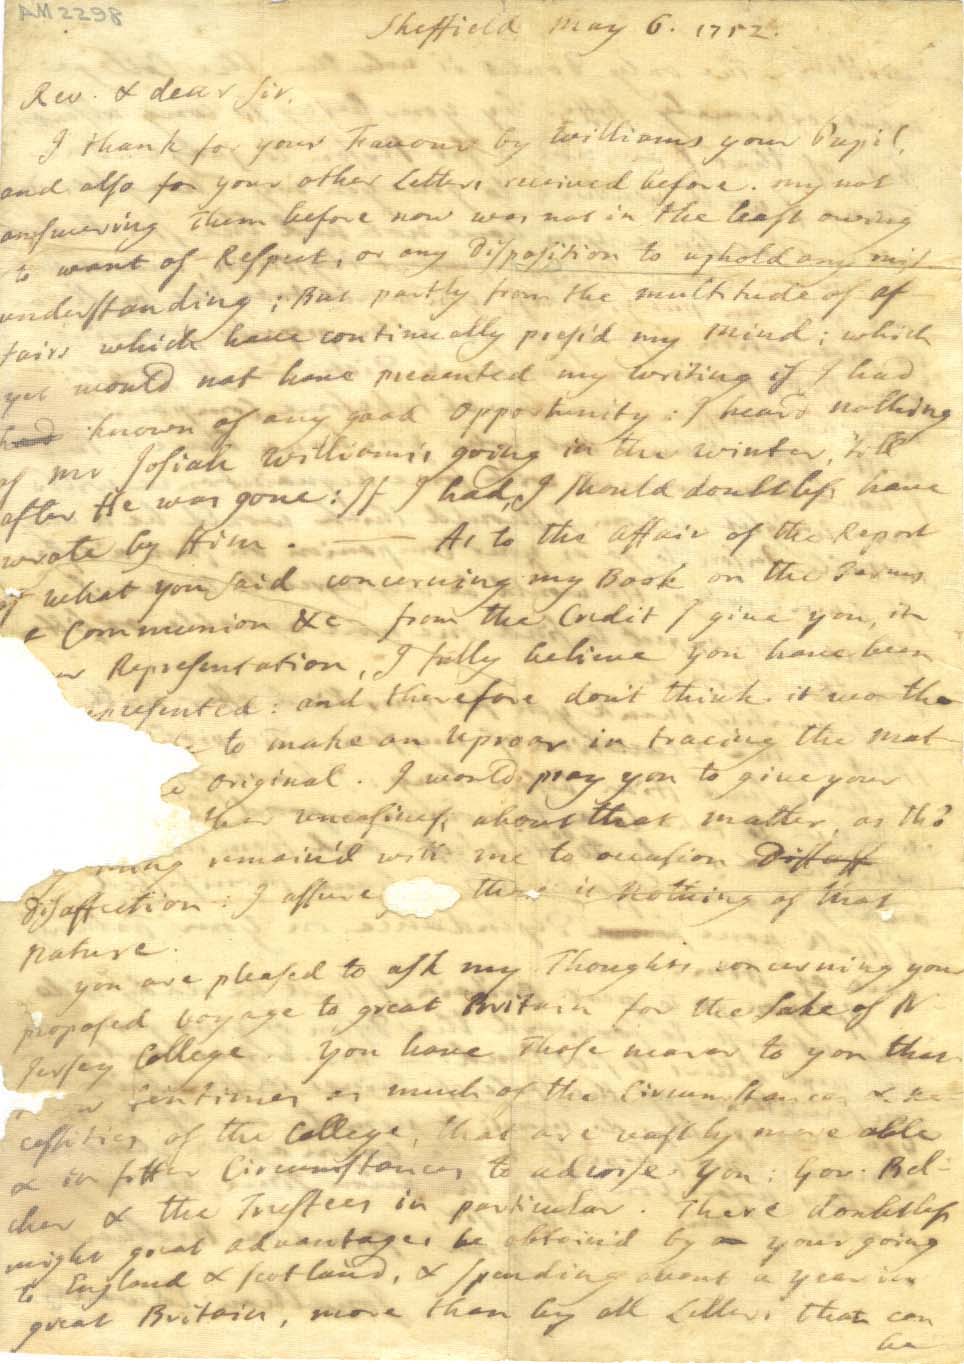 AM 2298
Sheffield May 6. 1752.
Rev. & dear Sir,
I thank for your Favour by Williams your Pupil,
and also for your other Letters received before. my not
answering Them before now was not in the least owing
to want of Respect, or any Disposition to uphold any mis-
understanding; But partly from the multitude of af
fairs which have continually press'd my mind; which
yet would not have prevented my writing if I had
had known of any good opportunity: I heard nothing
of mr Josiah Williams's going in the winter, till
after He was gone: If I had, I should doubtless have
wrote by Him. — As to the affair of the Report
of what you said concerning my Book on the Terms
of Communion &c from the Credit I give you, in
Representation, I fully believe you have been
represented: and therefore don't think it wo the
to make an Uproar in tracing the mat-
original. I would pray you to give your
ther uneasiness about that matter, as tho
remain'd with me to occasion Disaff
Disaffection: I assure there is Nothing of that
nature.
you are pleased to ask my Thoughts concerning your
proposed voyage to great Britain for the sake of N
Jersey College. You have Those nearer to you that
sentimes as much of the Circumstances & ne-
cessities of the College, that are vastly more able
& in fitter Circumstances to advise you: Gov. Bel-
cher & the Trustees in particular. There doubtless
might great advantages be obtain'd by your going
to England & Scotland, & spending about a year in
great Britain, more than by all Letters that can
be